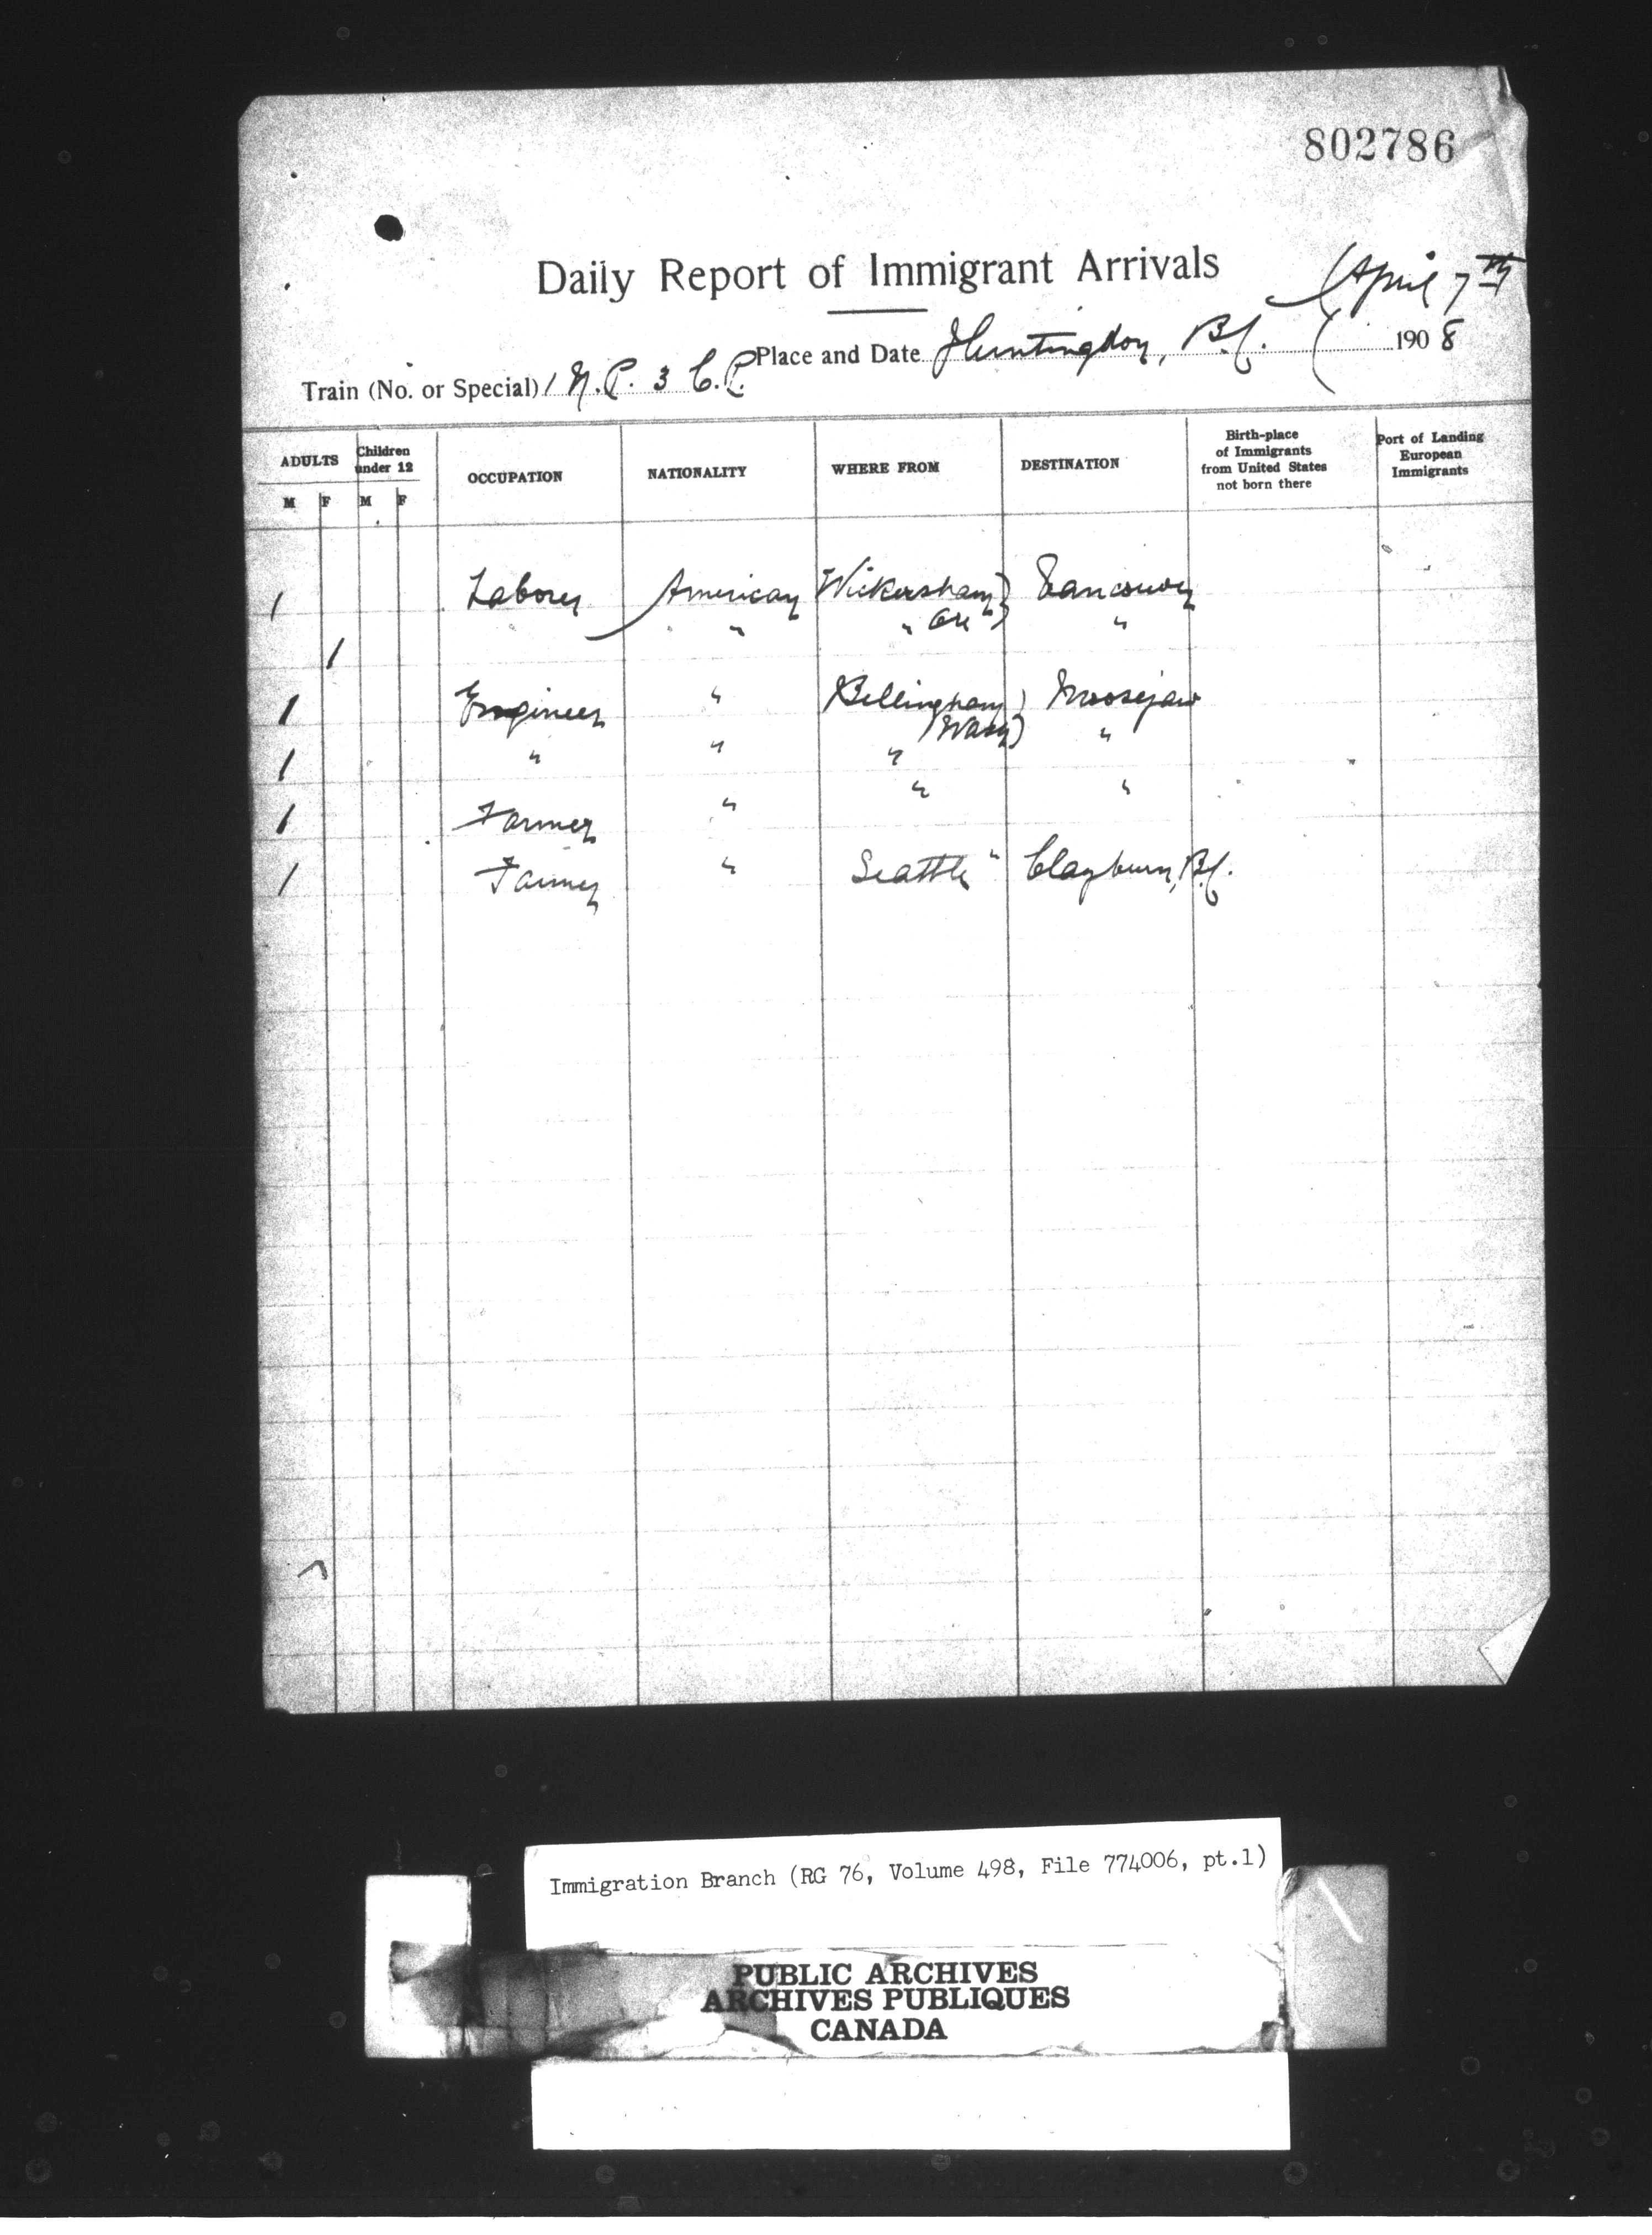 802786
Daily Report of Immigrant Arrivals
April 7th
Place and Date Huntingdon, B.C. 1908
Train (No. or Special) 1 N.P. 3 C.P.
ADULTS Children under 12 OCCUPATION NATIONALITY WHERE FROM DESTINATION Birth-place of Immigrants from United States not born there Port of Landing European Immigrants
M F M F
1 Laborer American Wickersham Vancouver
1 " " Ore "
1 Engineer " Bellingham Moosejaw
Wash
1 " " " "
1 Farmer " " "
1 Farmer " Seattle " Clayburn, B.C.
Immigration Branch (RG 76, Volume 498, File 774006, pt.1)
PUBLIC ARCHIVES
ARCHIVES PUBLIQUES
CANADA